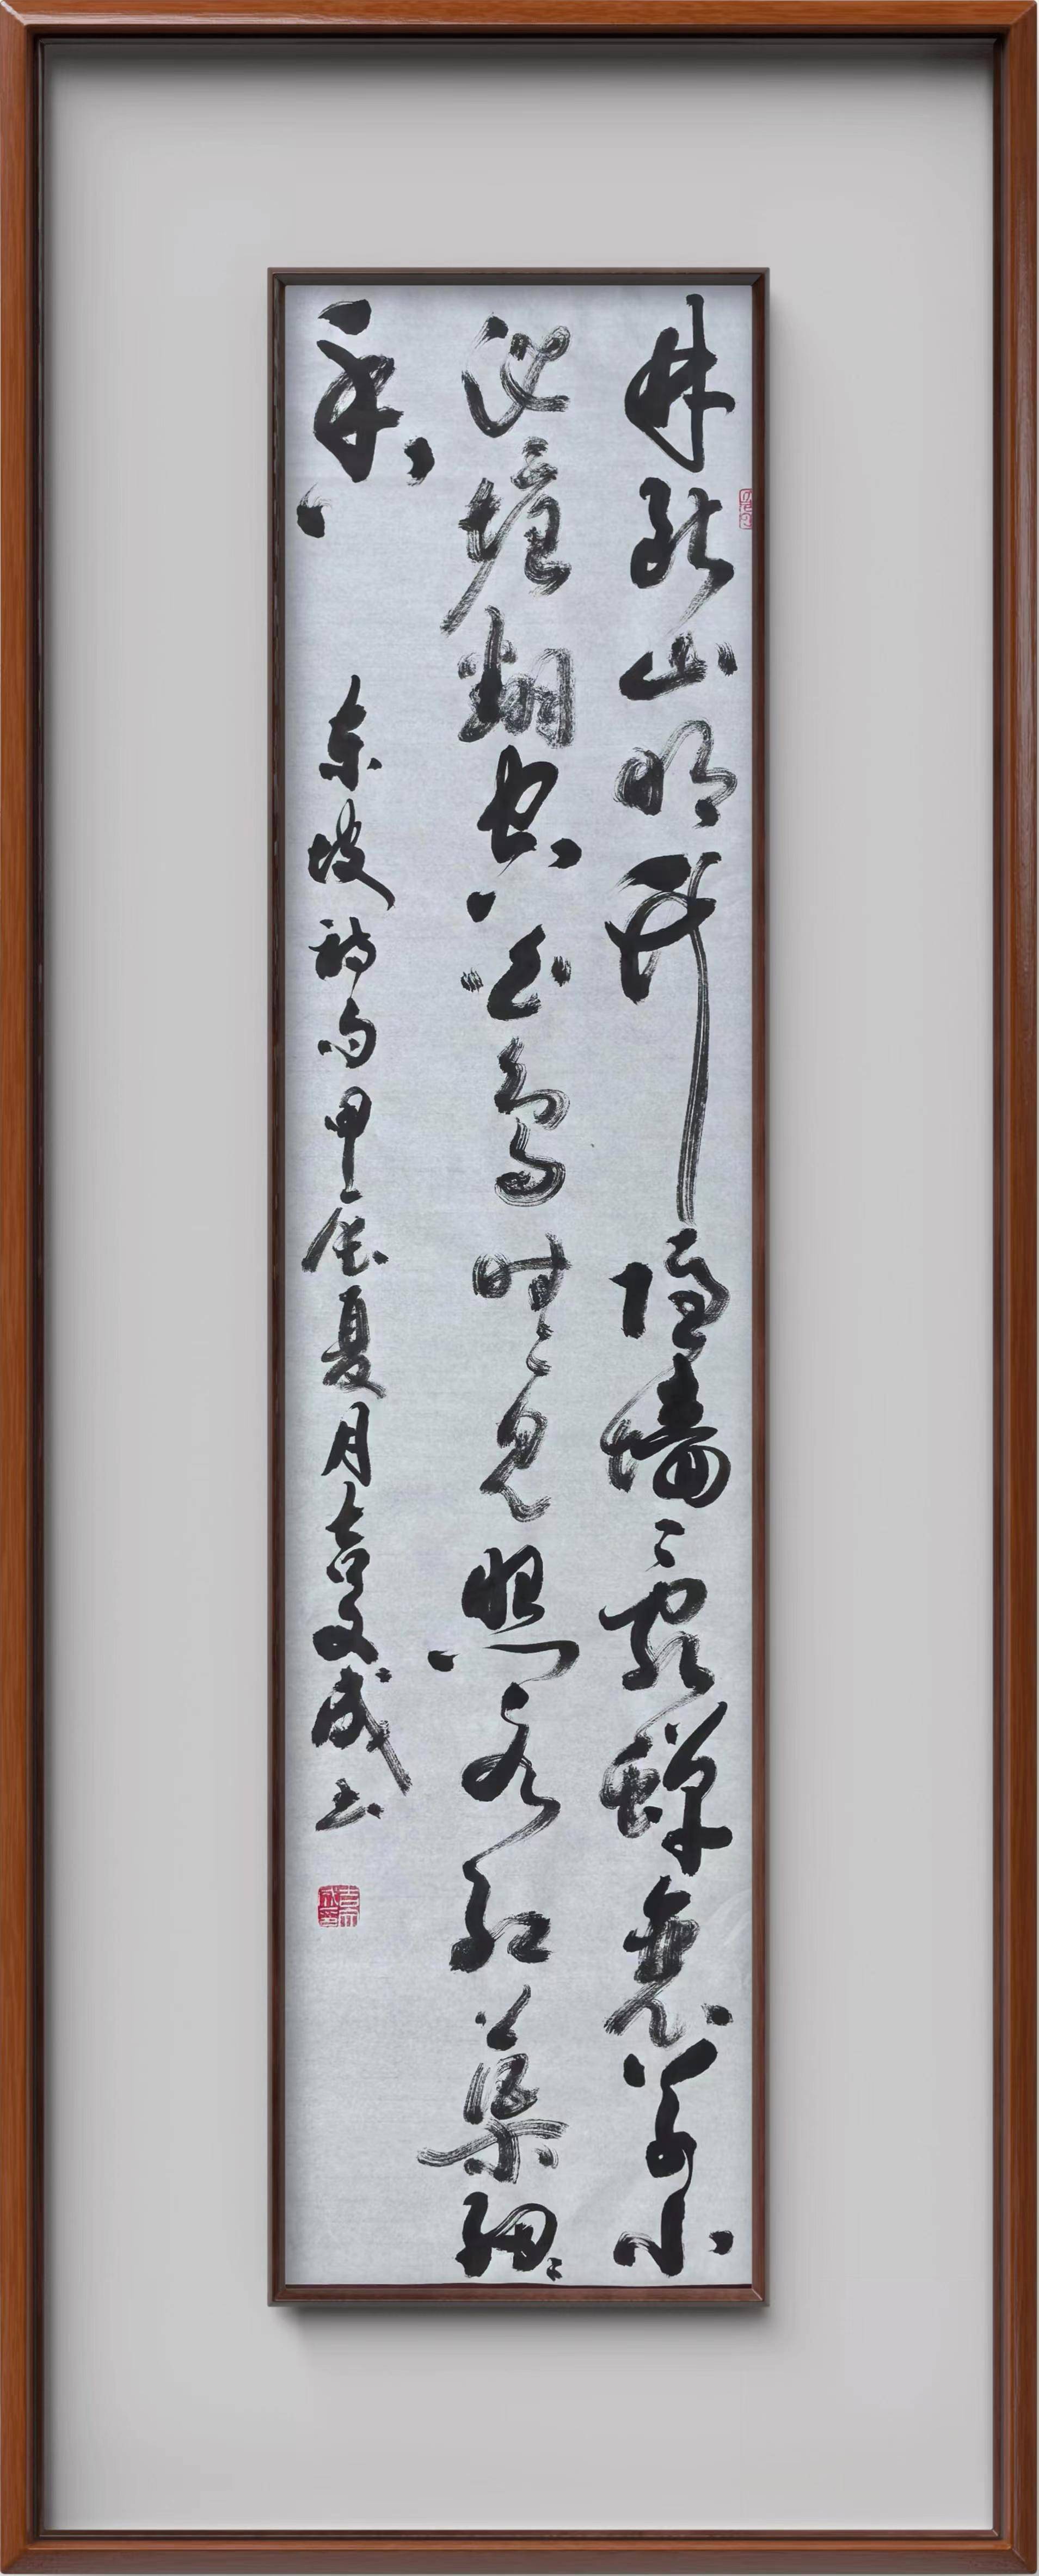 林断山明竹隐墙乱蝉衰草小
池塘翻空白鸟时々见照水红蕖细々
香
东坡诗句甲辰夏月吉文成书